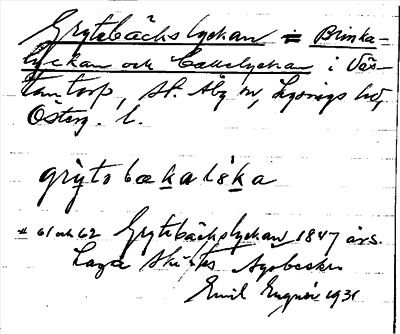 Grytsbäckslyckan = Brinka-
lyckan och Callelyckan i Väs-
tantorp, St. Åby sn, Lysings hd,
Österg. l.
grỳtsbækalśka
# 61 och 62 Grytsbäckslyckan 1847 års
Laga Skiftes
Emil 1931